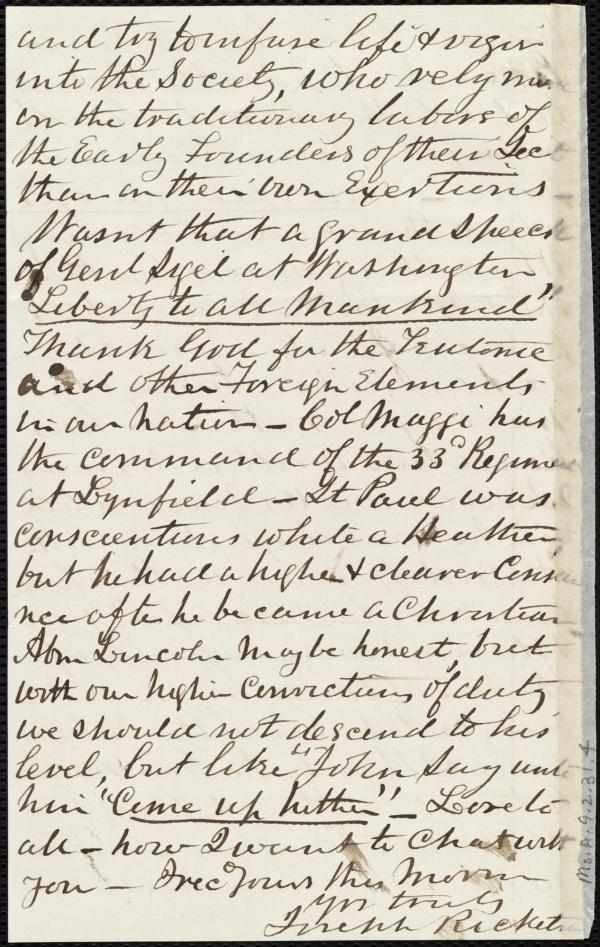 and try to infuse life & vigor
into the Society, who rely
on the traditionary labors of
the Early Founders of their Soc
than on their own Exertions
Wasnt that a grand Speec
of Genl Sigel at Washington
"Liberty to all Mankind"
Thank God for the Teutonic
and other Foreign Elements
in our nation – Col Maggi has
the command of the 33d Regime
at Lynfield – St Paul was
conscientious while a Heathen
but he had a higher & clearer Consci
nce after he became a Christian
Abm Lincoln may be honest, but
with our higher convictions of duty
we should not descend to his
level, but like "John Say unto
him "Come up hither" – Love to
all – how I want to chat with
you – I rec Yours this Morn
Yrs truly
Joseph Ricket
Ms.A.9.2.31.4